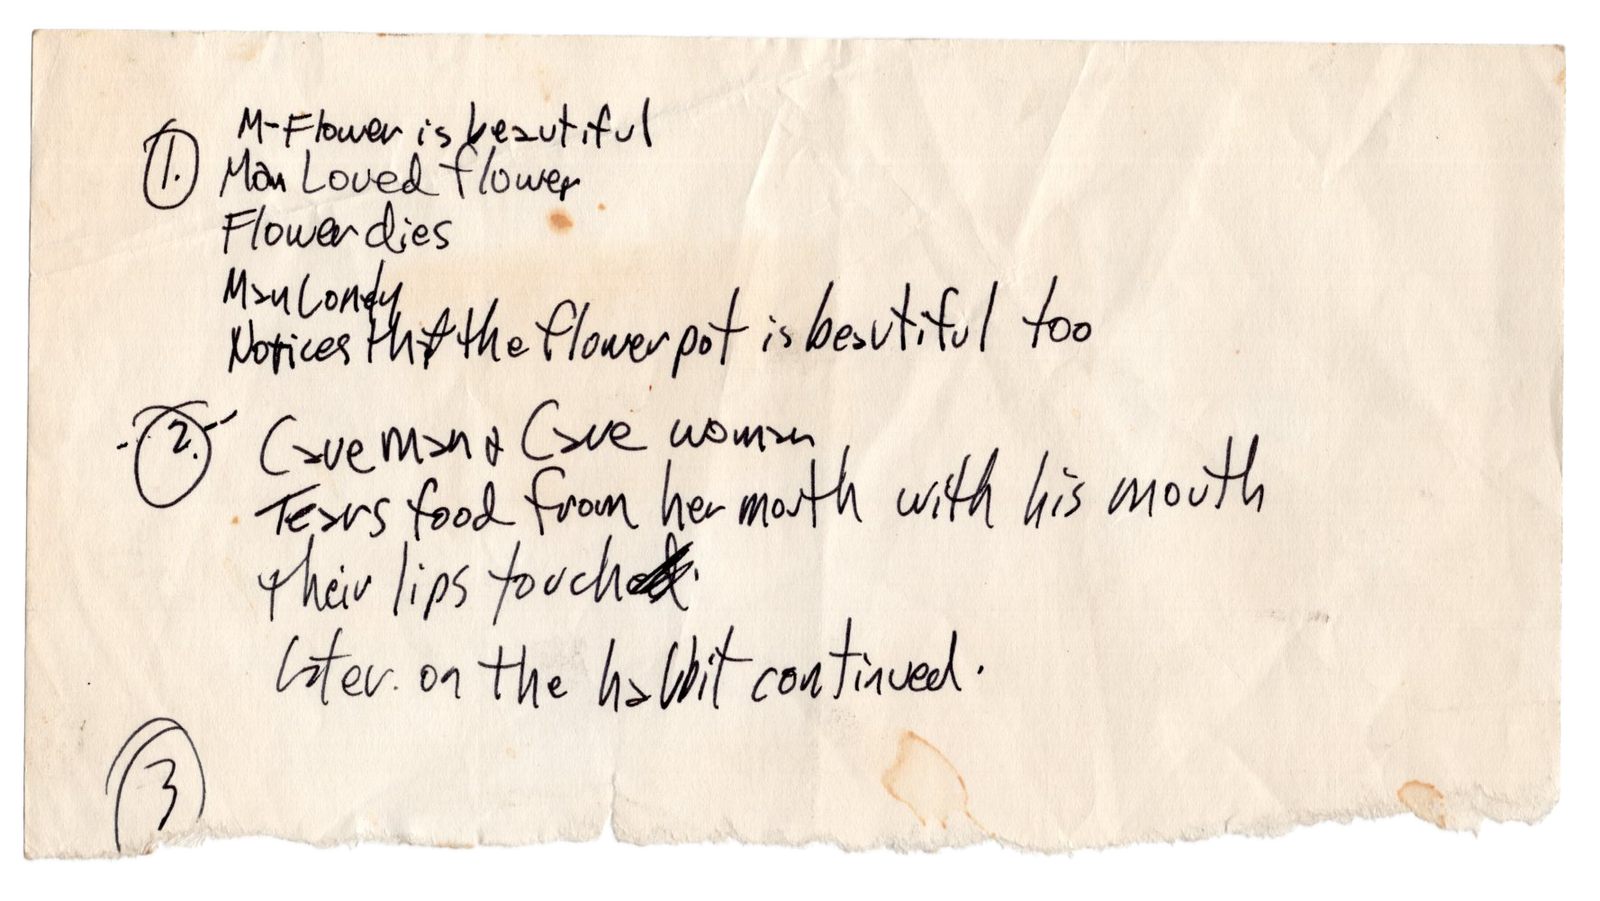 1. M-Flower is beautiful
Man Loved flower
Flower dies
Man Lonely
Notices that the flower pot is beautiful too
2. Cave man & Cave woman
Tears food from her mouth with his mouth
their lips touch
Later on the habbit continued.
3